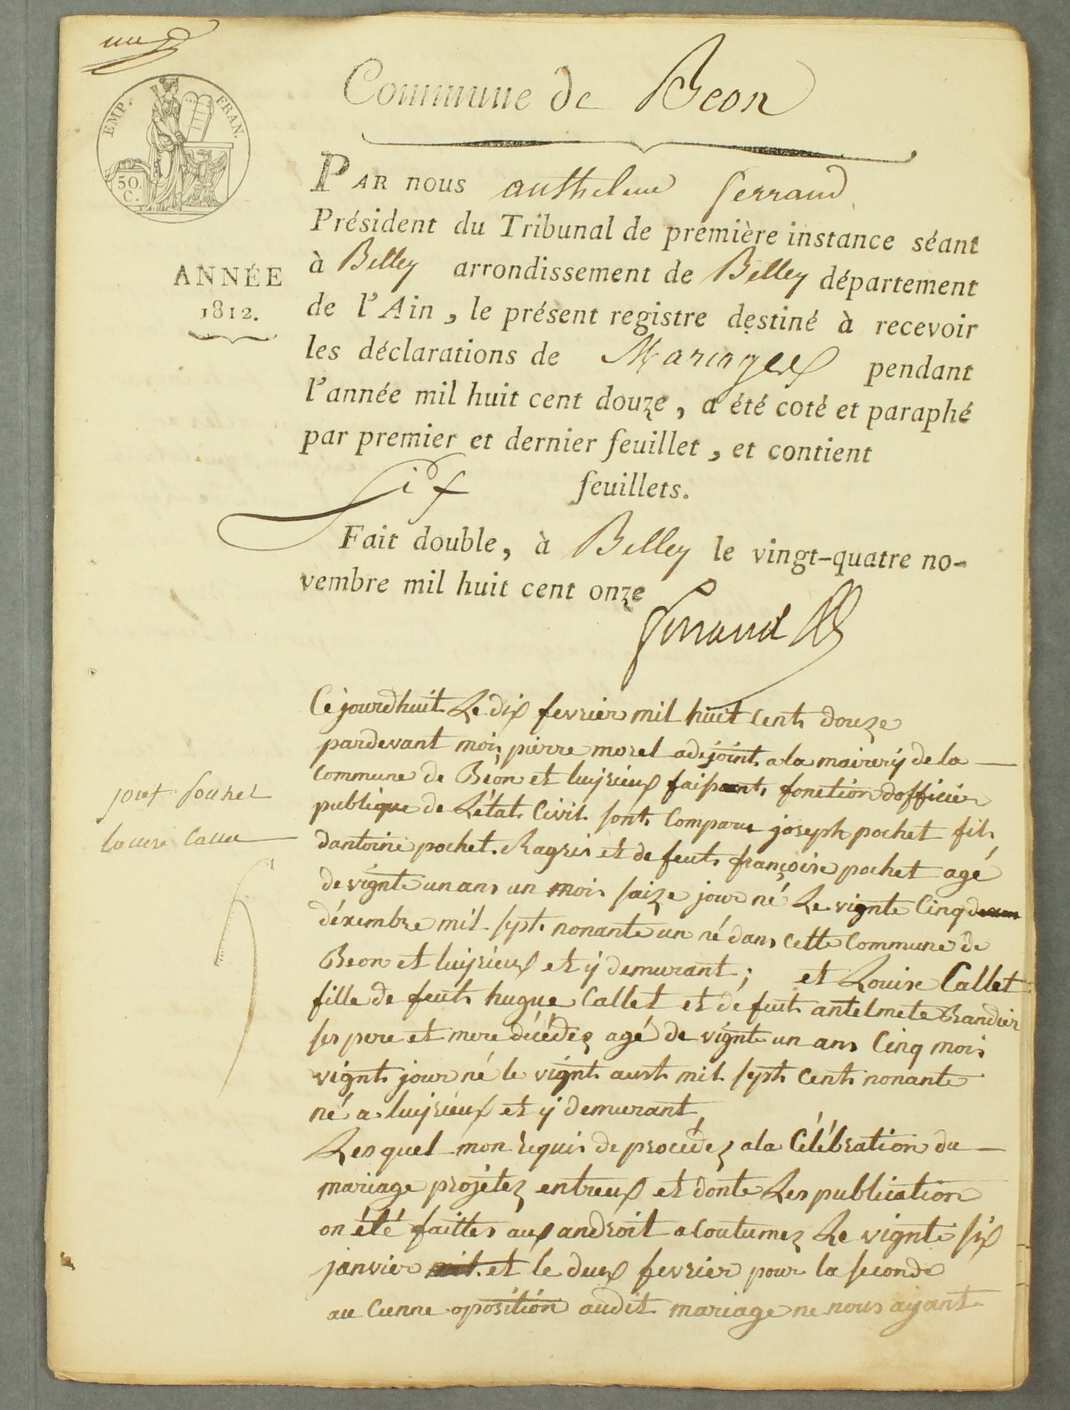 EMP. FRAN.
50. C.
Commune de Beon
ANNÉE
1812.
PAR NOUS anthelme ferrand
Président du Tribunal de première instance séant
à Belley arrondissement de Belley département
de l'Ain, le présent registre destiné à recevoir
les déclarations de Mariages pendant
l'année mil huit cent douze, a été coté et paraphé
par premier et dernier feuillet, et contient
Six feuillets.
Fait double, à Belley le vingt-quatre no-
vembre mil huit cent onze
ferrand
Ce jourdhuit Le dix fevrier mil huit cent douze
pardevant moi pierre morel adjoint a la mairiy de la
commune de Béon et luyrieux faisant fonction dofficier
publique de Létat Civil sont Comparu joseph pochet fils
dantoine pochet Ragris et de feut françoise pochet agé
de vignte un ans un mois saize jour né Le vignte Cinq
déxembre mil sept nonante un né dans cette Commune de
Beon et luyrieux et y demurant; et Louise Callet
fille de feut hugue Callet et de feut antelmete Brandier
ses pere et mere décédés agé de vignte un ans Cinq mois
vignt jour né le vignt aust mil sept cent nonante
né a luyrieux et y demurant,
Lesquel mon requis de procédez a la Célébration du
mariage projétez entreux et donte Les publication
on été faittes aux androit acoutumez Le vignte six
janvier et le deux fevrier pour la seconde
au cunne oposition audit mariage ne nous ayant